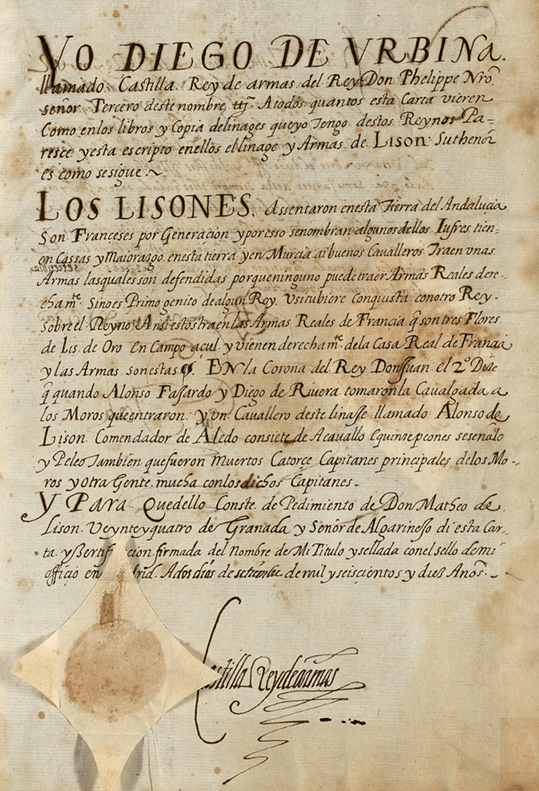 YO DIEGO DE VRBINA.
llamado Castilla. Rey de armas del Rey Don Phelippe Nrō
señor Tercero deste nombre. Atodos quantos esta Carta vieren
Como enlos libros y Copia delinages queyo Tengo destos Reynos Pa-
resce yesta escripto enellos el linage y Armas de Lison. Suthenor
es como sesigue.
LOS LISONES. Assentaron enesta Tierra del Andalucia
Son Franceses por Generacion yporesso senombran algunos dellos Iufres tien-
en Cassas y Maiorazgo enesta tierra y en Murcia ai buenos Cavalleros Traen vnas
Armas lasquales son defendidas porqueninguno puede traer Armas Reales dere-
cha mᵗᵉ. Sinoes Primo genito de algun Rey. Vsi tubiere Conquista conotro Rey.
Sobre el Reyno. Ansi estos traen las Armas Reales de Francia q̄ son tres Flores
de Lis. de Oro en Campo açul. y vienen derecha mᵗᵉ. de la Casa Real de Francia
y las Armas. son estas. EN la Corona del Rey Don Juan el 2º Dize
q̄ quando Alonso Faxardo y Diego de Rivera tomaron la Cavalgada a
los Moros que entraron. y vn Cavallero deste linaje llamado Alonso de
Lison. Comendador de Aledo consiete de Acavallo Equinze peones seseñalo
y Peleo Tambien que fueron Muertos Catorce Capitanes principales de los Mo-
ros y otra Gente mucha con los dichos Capitanes.
Y PARA Quedello Conste. de Pedimiento de Don Matheo de
Lison. Veynte y quatro de Granada y Señor de Algarinejo di esta Car-
ta. firmada del Nombre de Mi Titulo y sellada con el sello de mi
officio en Ados dias de setiembre de mil y seiscientos y diez Años.
Castilla Rey de armas